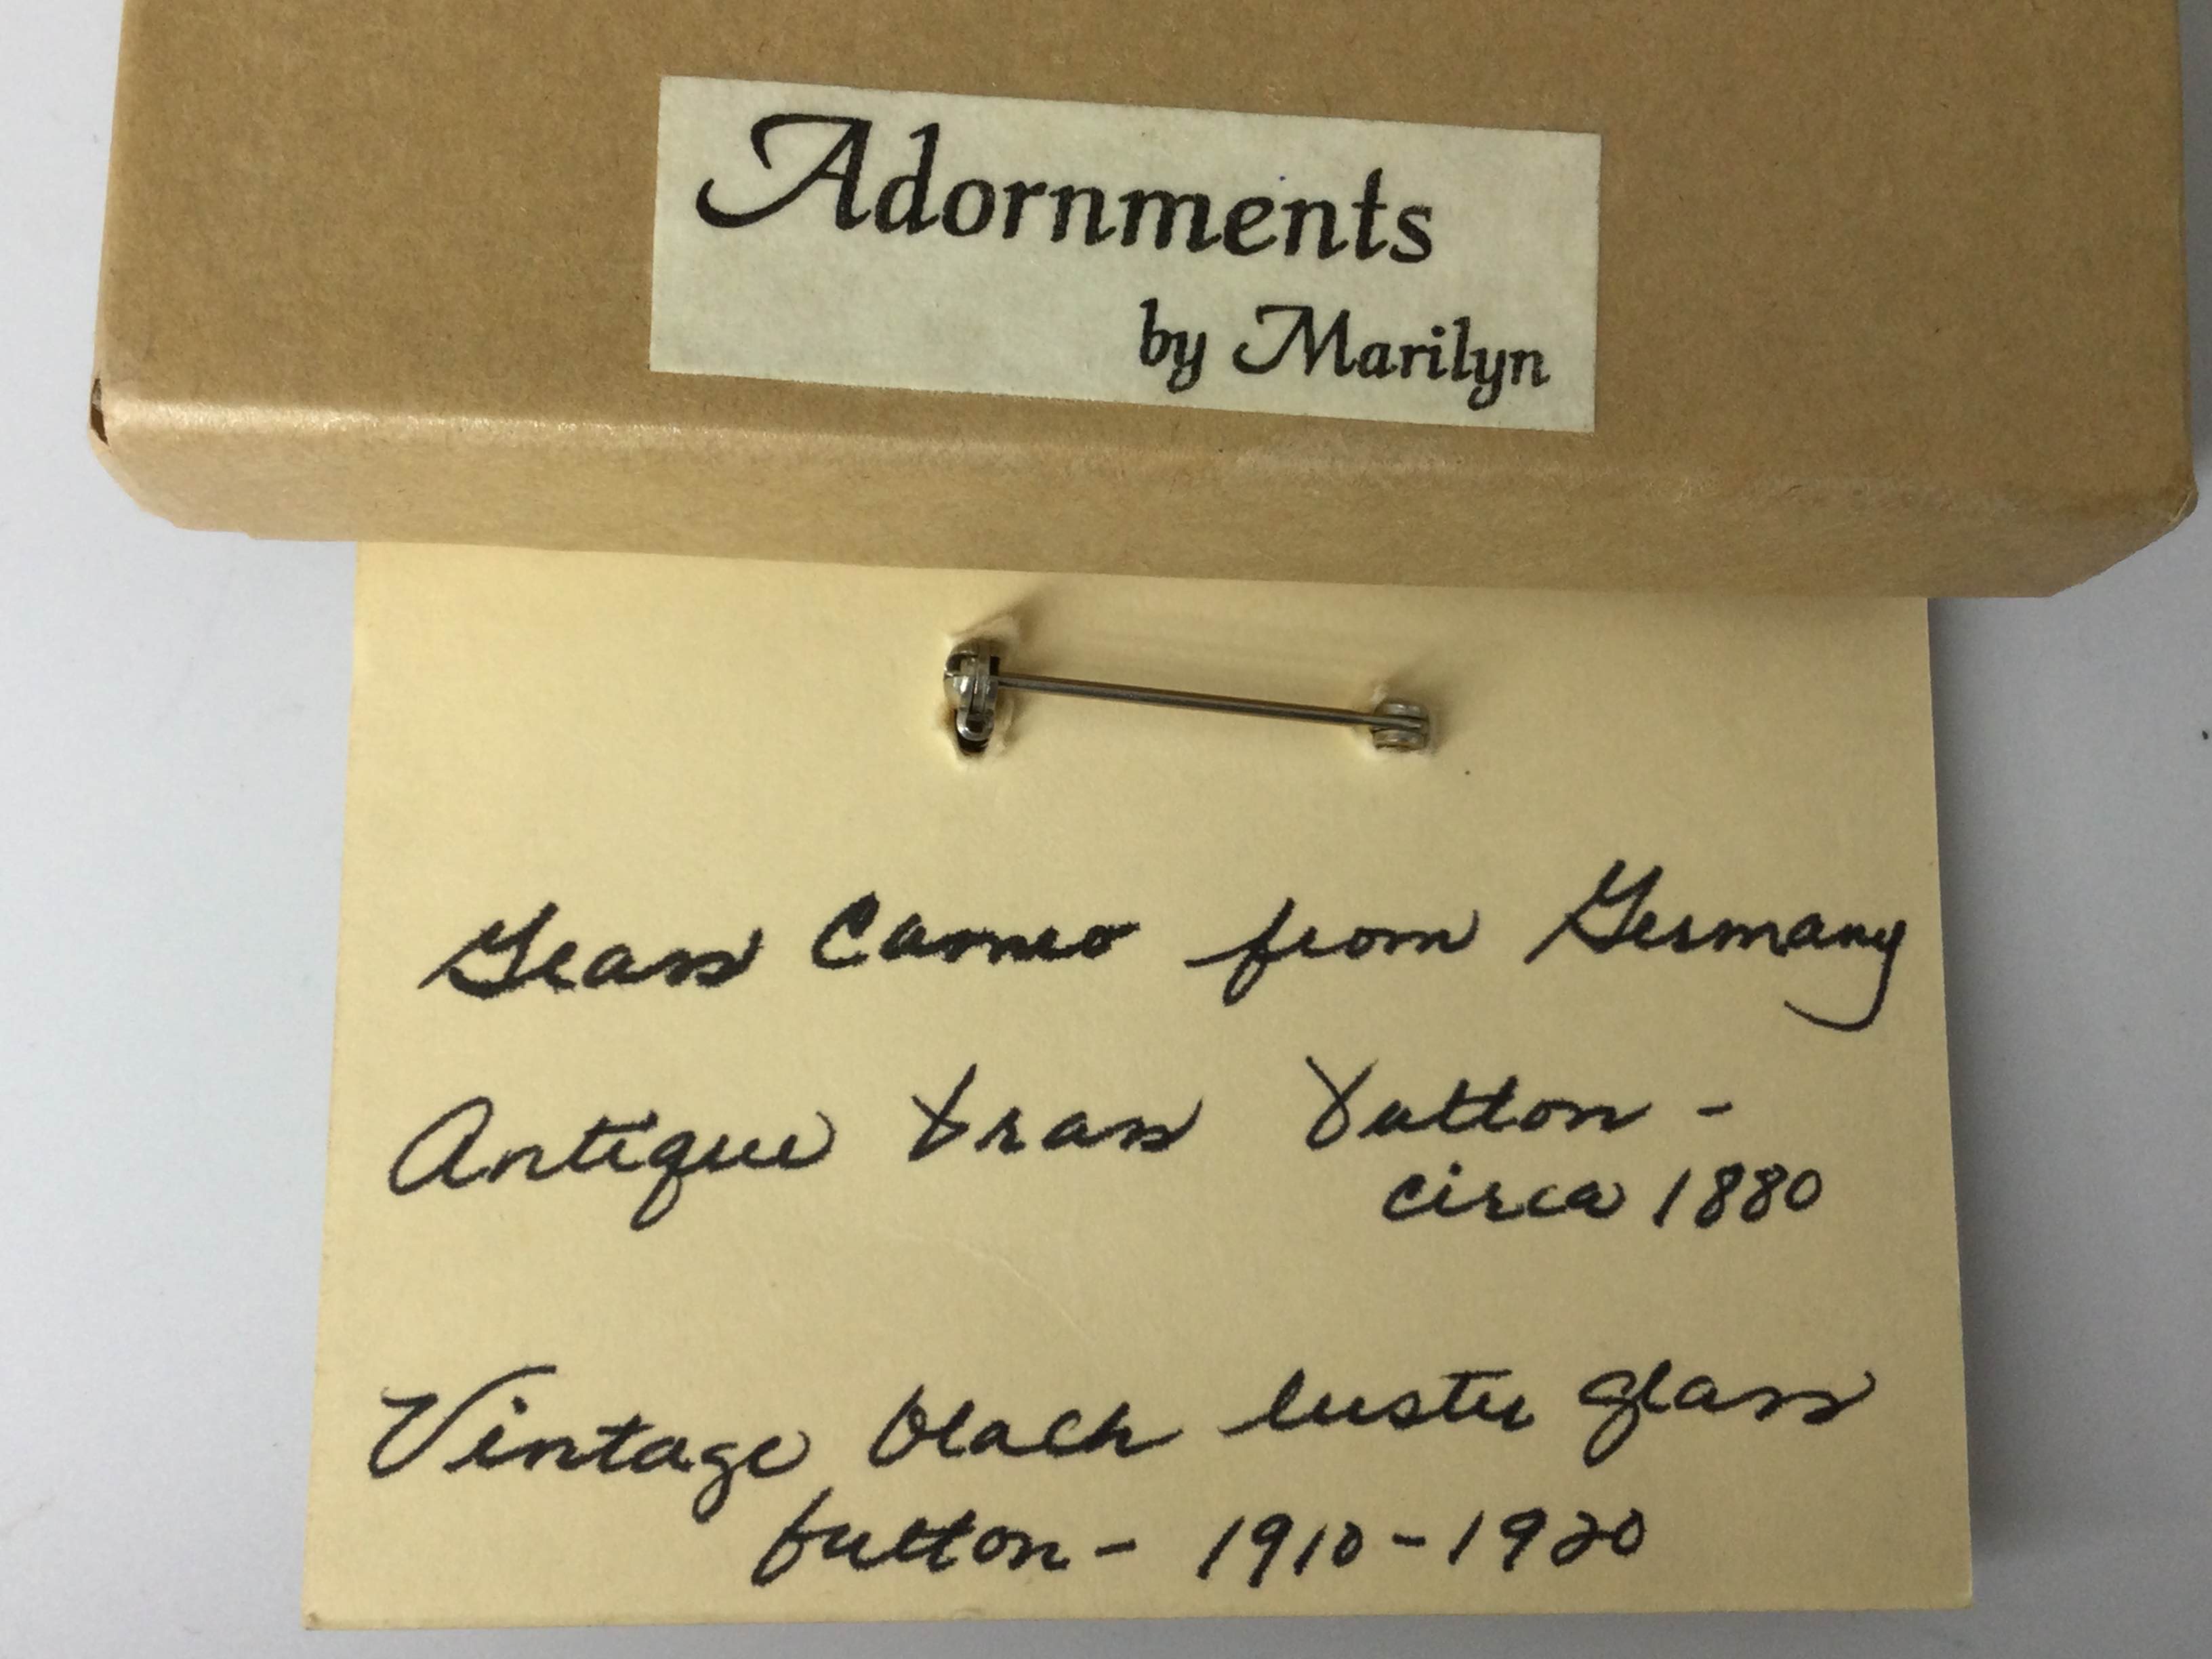 Adornments
by Marilyn
Glass Cameo from Germany
Antique brass button -
circa 1880
Vintage black luster glass
button - 1910-1920